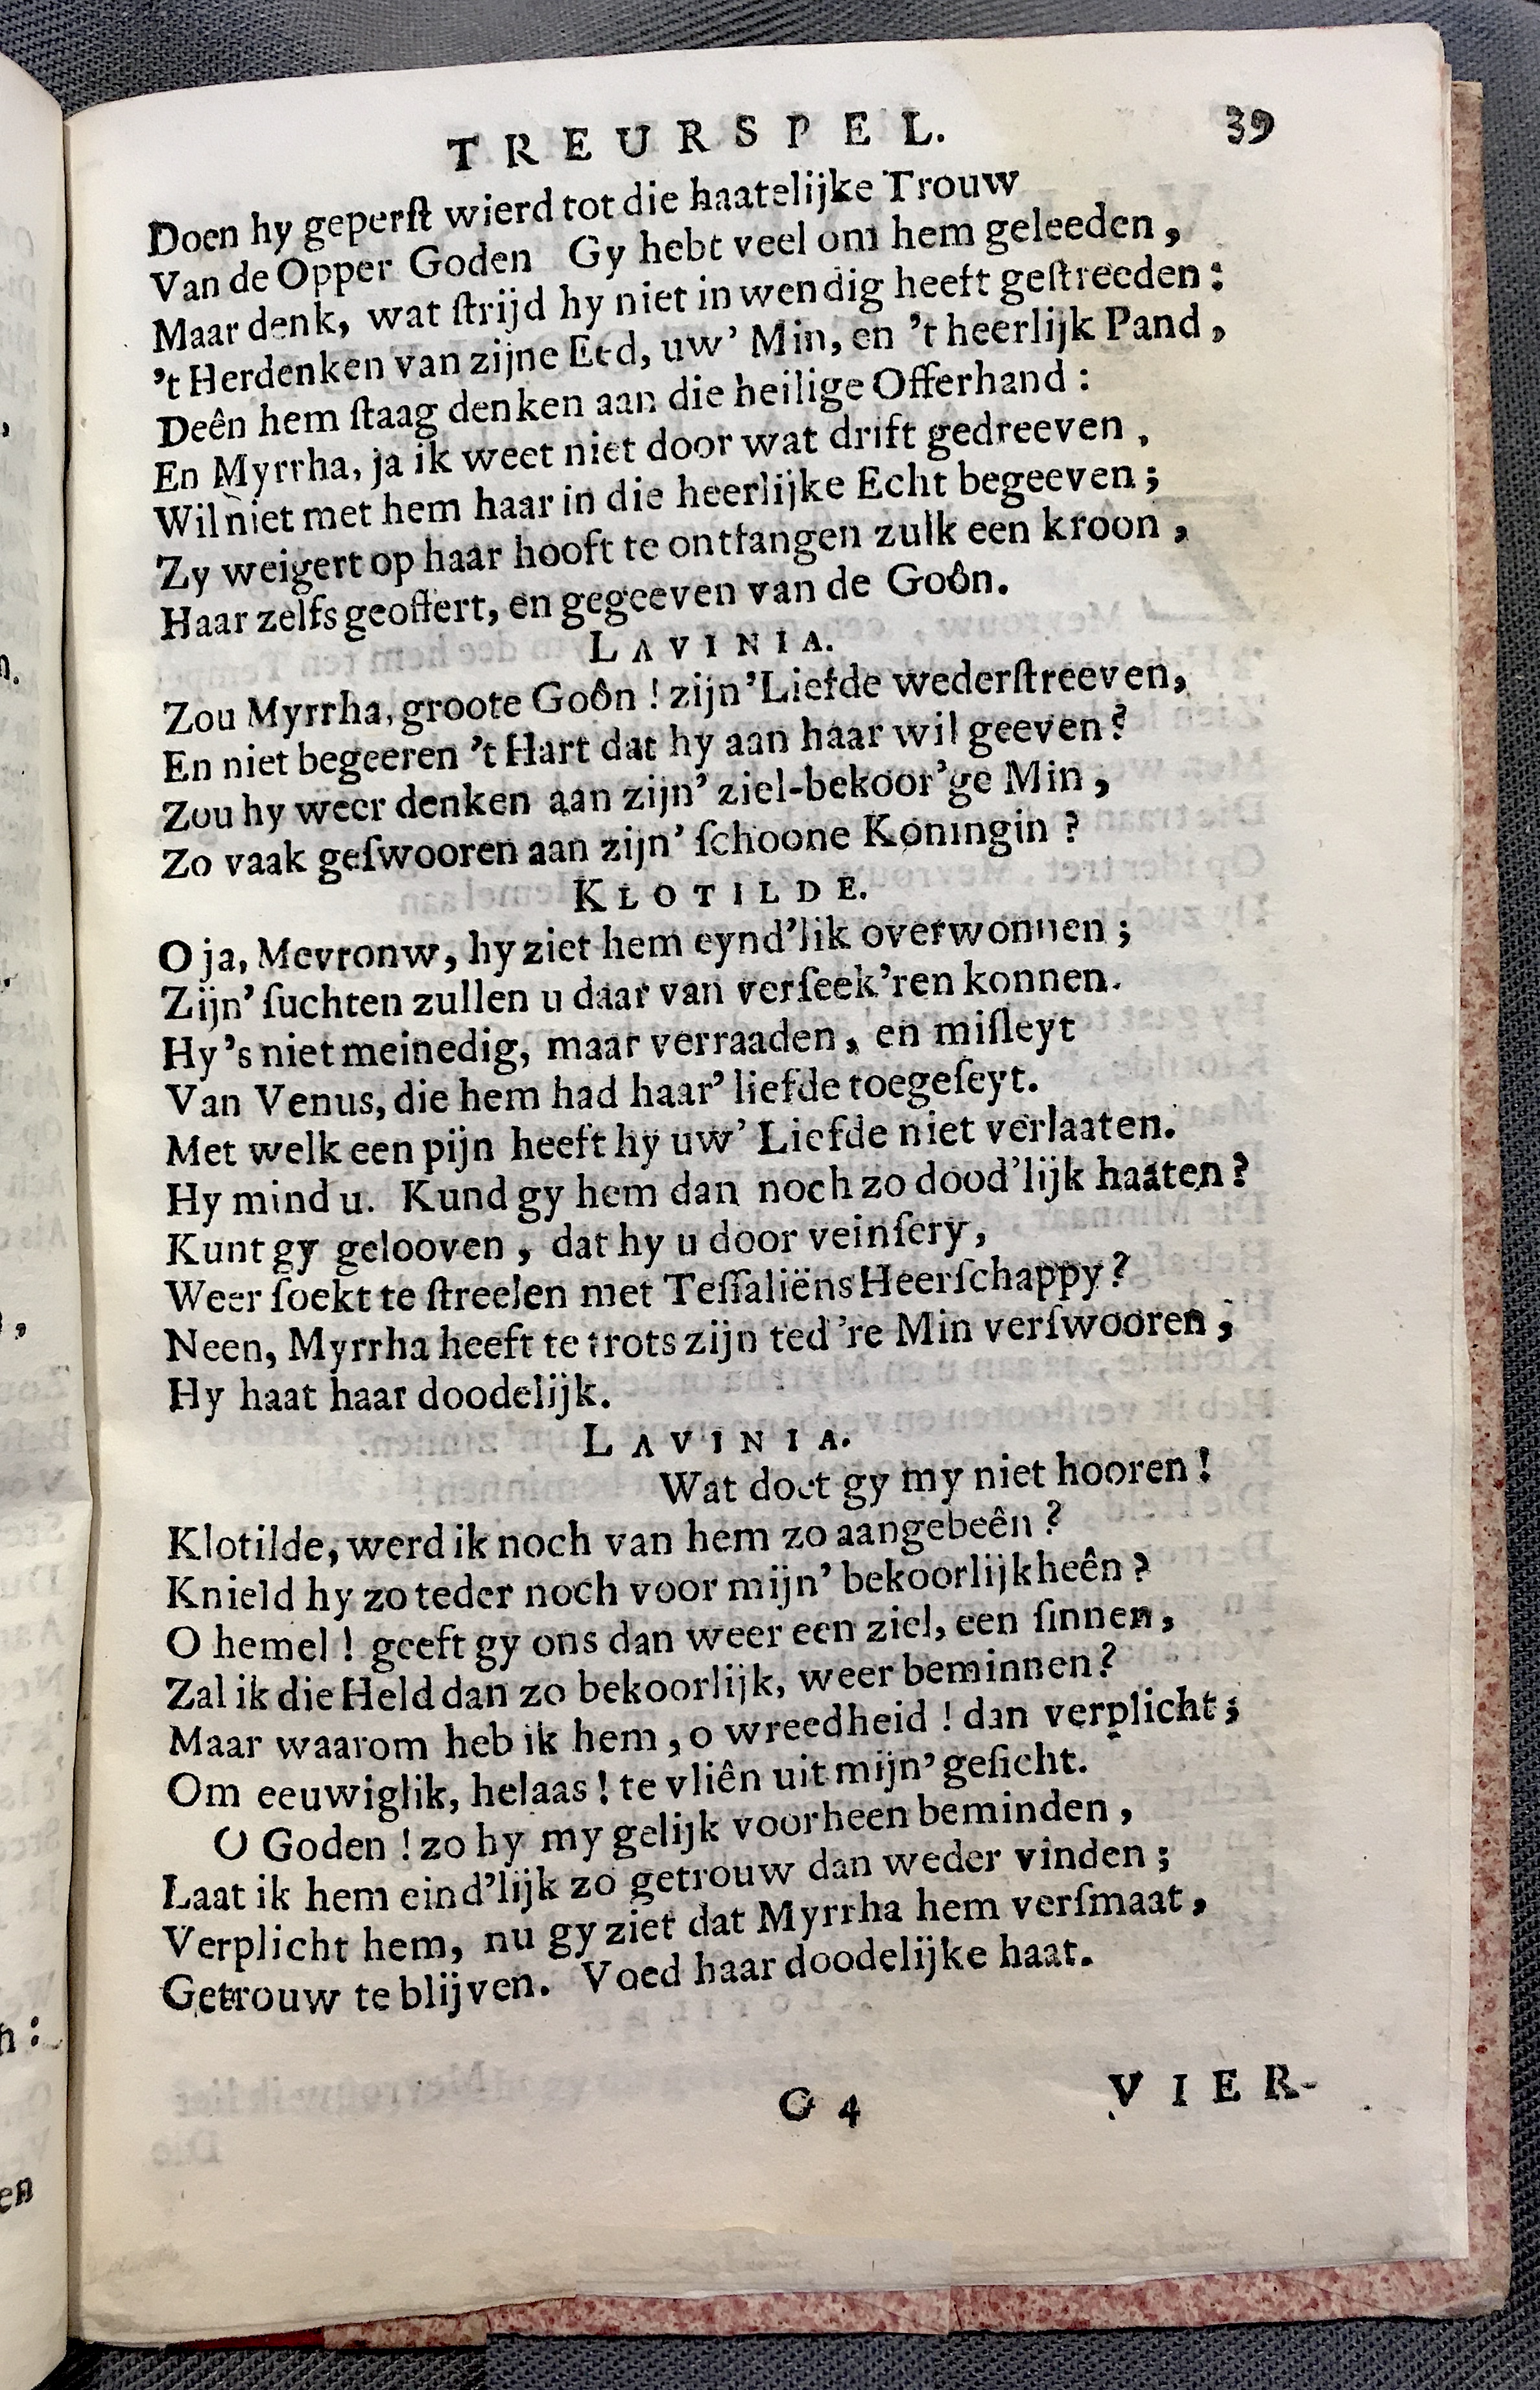 TREURSPEL. 39
Doen hy geperſt wierd tot die haatelijke Trouw
Van de Opper Goden Gy hebt veel om hem geleeden,
Maar denk, wat ſtrijd hy niet inwendig heeft geſtreeden:
't Herdenken van zijne Eed, uw' Min, en 't heerlijk Pand,
Deên hem ſtaag denken aan die heilige Offerhand:
En Myrrha, ja ik weet niet door wat drift gedreeven,
Wil niet met hem haar in die heerlijke Echt begeeven;
Zy weigert op haar hooft te ontfangen zulk een kroon,
Haar zelfs geoffert, en gegeeven van de Goôn.
LAVINIA.
Zou Myrrha, groote Goôn! zijn' Liefde wederſtreeven,
En niet begeeren 't Hart dat hy aan haar wil geeven?
Zou hy weer denken aan zijn' ziel-bekoor'ge Min,
Zo vaak geſwooren aan zijn' ſchoone Koningin?
KLOTILDE.
O ja, Mevronw, hy ziet hem eynd'lik overwonnen;
Zijn' ſuchten zullen u daar van verſeek'ren konnen.
Hy 's niet meinedig, maar verraaden, en miſleyt
Van Venus, die hem had haar' liefde toegeſeyt.
Met welk een pijn heeft hy uw' Liefde niet verlaaten.
Hy mind u. Kund gy hem dan noch zo dood'lijk haaten?
Kunt gy gelooven, dat hy u door veinſery,
Weer ſoekt te ſtreelen met Teſſaliëns Heerſchappy?
Neen, Myrrha heeft te trots zijn ted're Min verſwooren;
Hy haat haar doodelijk.
LAVINIA.
Wat doet gy my niet hooren!
Klotilde, werd ik noch van hem zo aangebeên?
Knield hy zo teder noch voor mijn' bekoorlijkheên?
O hemel! geeft gy ons dan weer een ziel, een ſinnen,
Zal ik die Held dan zo bekoorlijk, weer beminnen?
Maar waarom heb ik hem, o wreedheid! dan verplicht;
Om eeuwiglik, helaas! te vliên uit mijn' geſicht.
O Goden! zo hy my gelijk voorheen beminden,
Laat ik hem eind'lijk zo getrouw dan weder vinden;
Verplicht hem, nu gy ziet dat Myrrha hem verſmaat,
Getrouw te blijven. Voed haar doodelijke haat.
G 4 VIER-